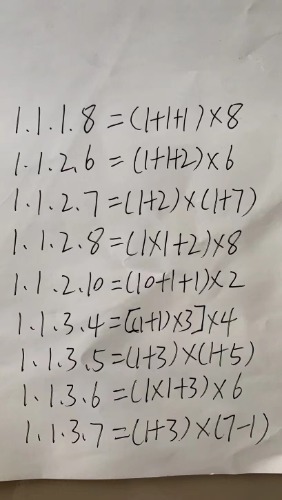 1.1.1.8=(1+1+1)×8
1.1.2.6=(1+1+2)×6
1.1.2.7=(1+2)×(1+7)
1.1.2.8=(1×1+2)×8
1.1.2.10=(10+1+1)×2
1.1.3.4=[(1+1)×3]×4
1.1.3.5=(1+3)×(1+5)
1.1.3.6=(1×1+3)×6
1.1.3.7=(1+3)×(7-1)